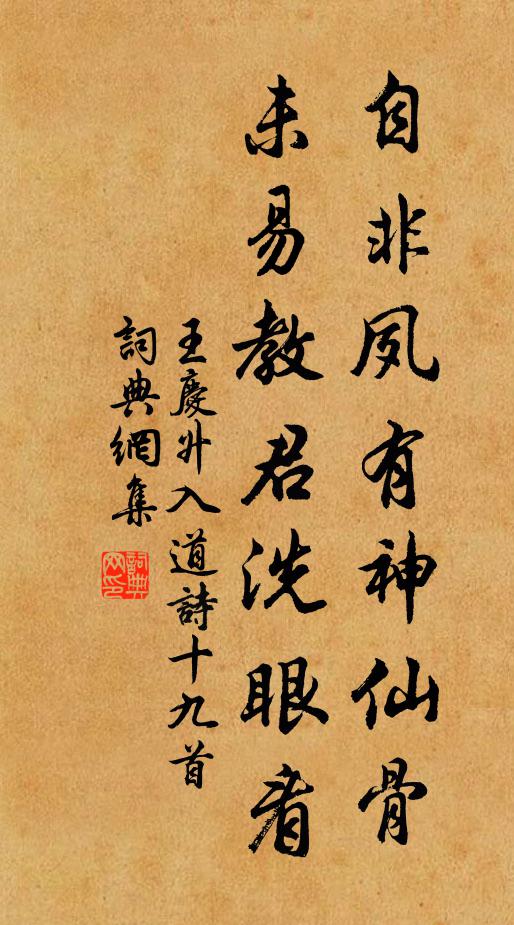 自非夙有神仙骨
未易教君洗眼看
王慶升入道詩十九首
詞典網集
詞典
网印